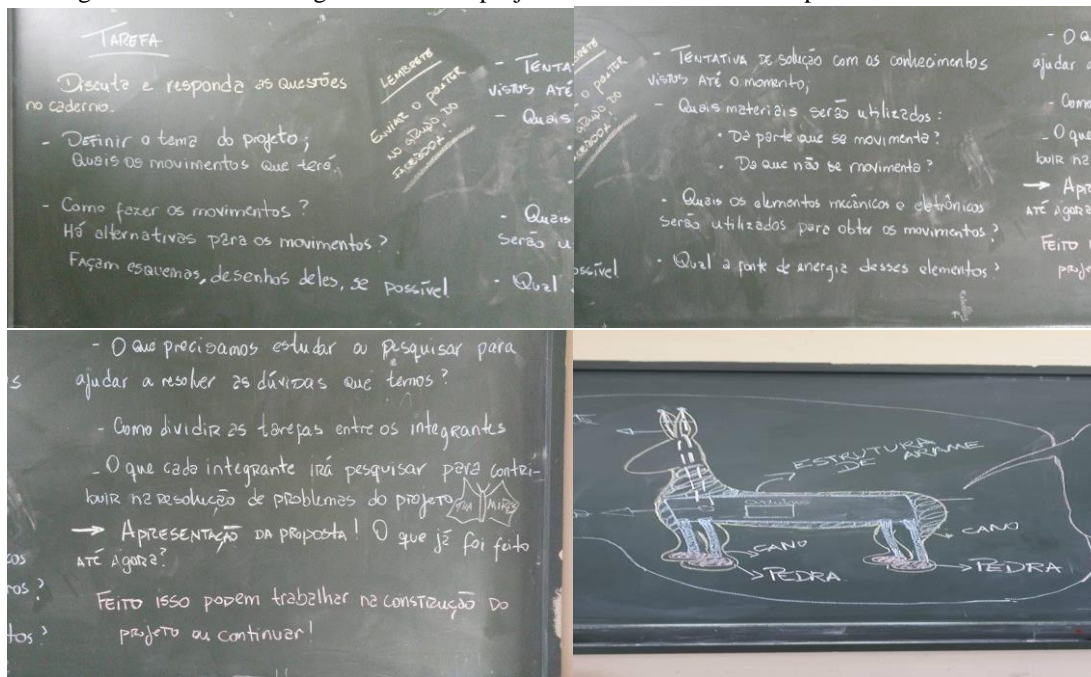 TAREFA
Discuta e responda as questões
no caderno.
- Definir o tema do projeto;
Quais os movimentos que terá.
- Como fazer os movimentos?
Há alternativas para os movimentos?
Façam esquemas, desenhos deles, se possível
LEMBRETE
ENVIAR O POSTER
NO GRUPO DO
FACEBOOK!
- TENTA
VISTOS ATÉ
- Quais
- Quais
serão u
- Qual
- TENTATIVA DE solução com os conhecimentos
VISTOS ATÉ O momento;
- Quais materiais serão utilizados:
• Da parte que se movimenta?
• Da que não se movimenta?
- Quais os elementos mecânicos e eletrônicos
serão utilizados para obter os movimentos?
• Qual a fonte de energia desses elementos?
O POSTER
ossível
ajudar
- Como
- O que
buir na
→ Apre
ATÉ Agora
FEITO
proje
- O que precisamos estudar ou pesquisar para
ajudar a resolver as dúvidas que temos?
- Como dividir as tarefas entre os integrantes
- O que cada integrante irá pesquisar para contri-
buir na resolução de problemas do projeto
→ APRESENTAÇÃO DA PROPOSTA! O que já foi feito
ATÉ Agora?
FEITO isso podem trabalhar na construção do
projeto ou continuar!
cos
ros?
tos?
ESTRUTURA
DE ARAME
CANO
CANO
PEDRA
PEDRA